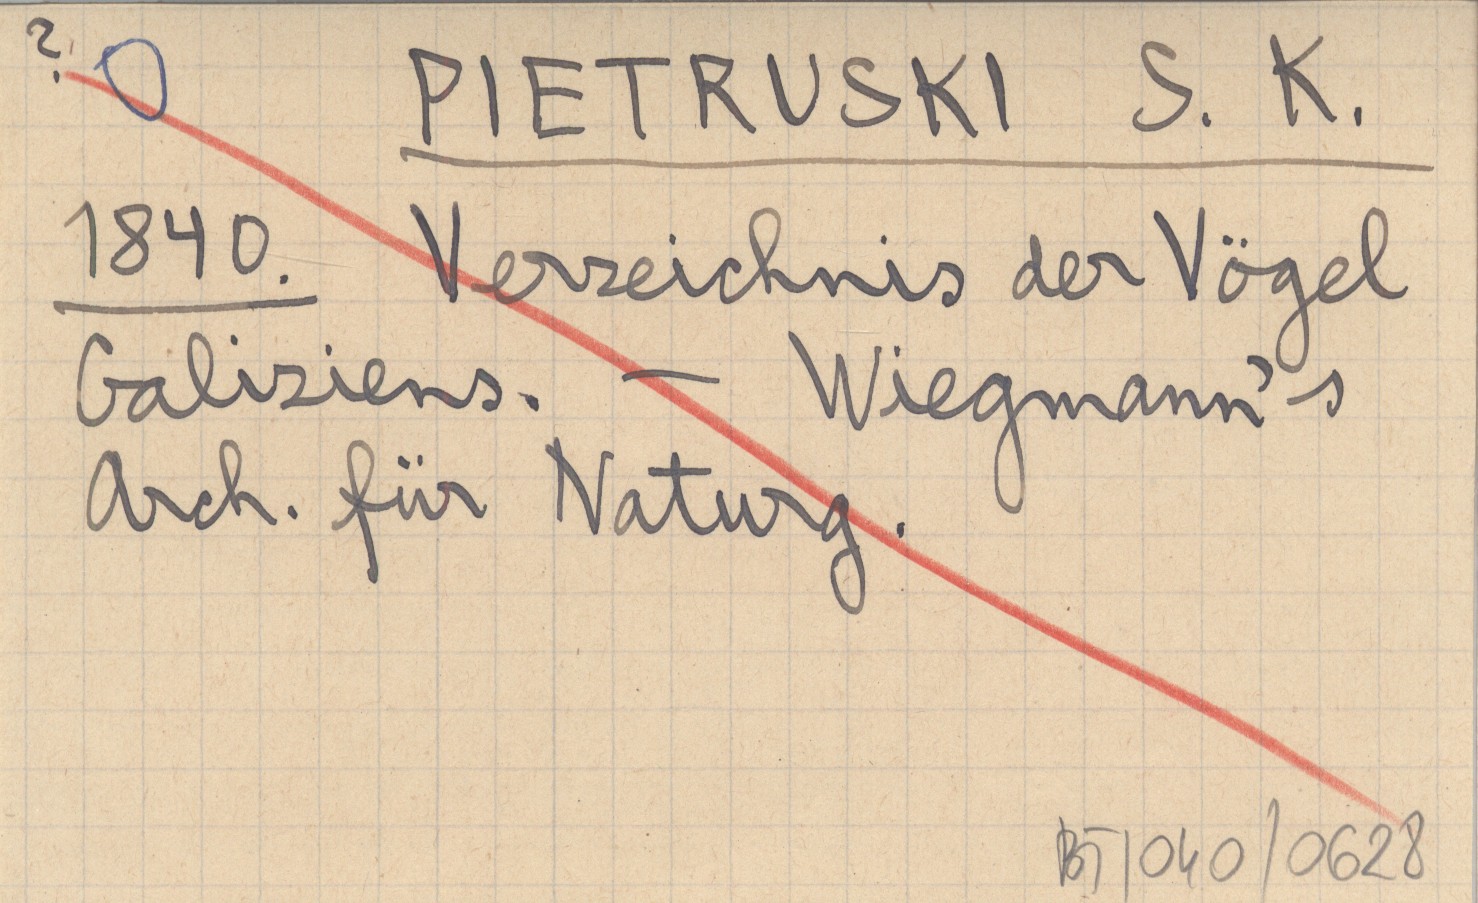 ?
PIETRUSKI S. K.
1840. Verzeichnis der Vögel
Galiziens. — Wiegmann's
Arch. für Naturg.
BT/040/0628